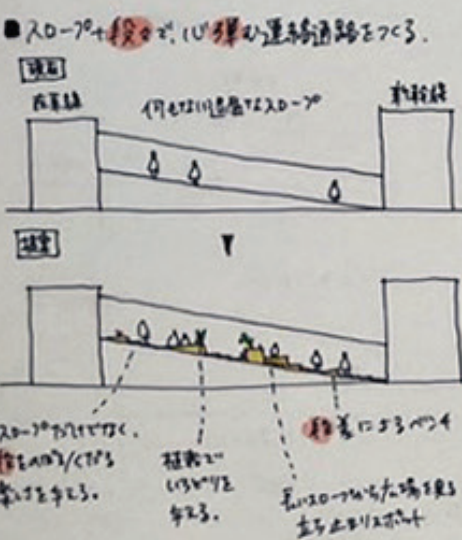 ■スロープ+段々で、心弾む連絡通路をつくる.
現在
在来線
何もない退屈なスロープ
新幹線
提案
スロープだけでなく、
段をのぼる/くだる
楽しさを与える。
植栽で
いろどりを
与える。
長いスロープから広場を見る
立ち止まりスポット
段差によるベンチ